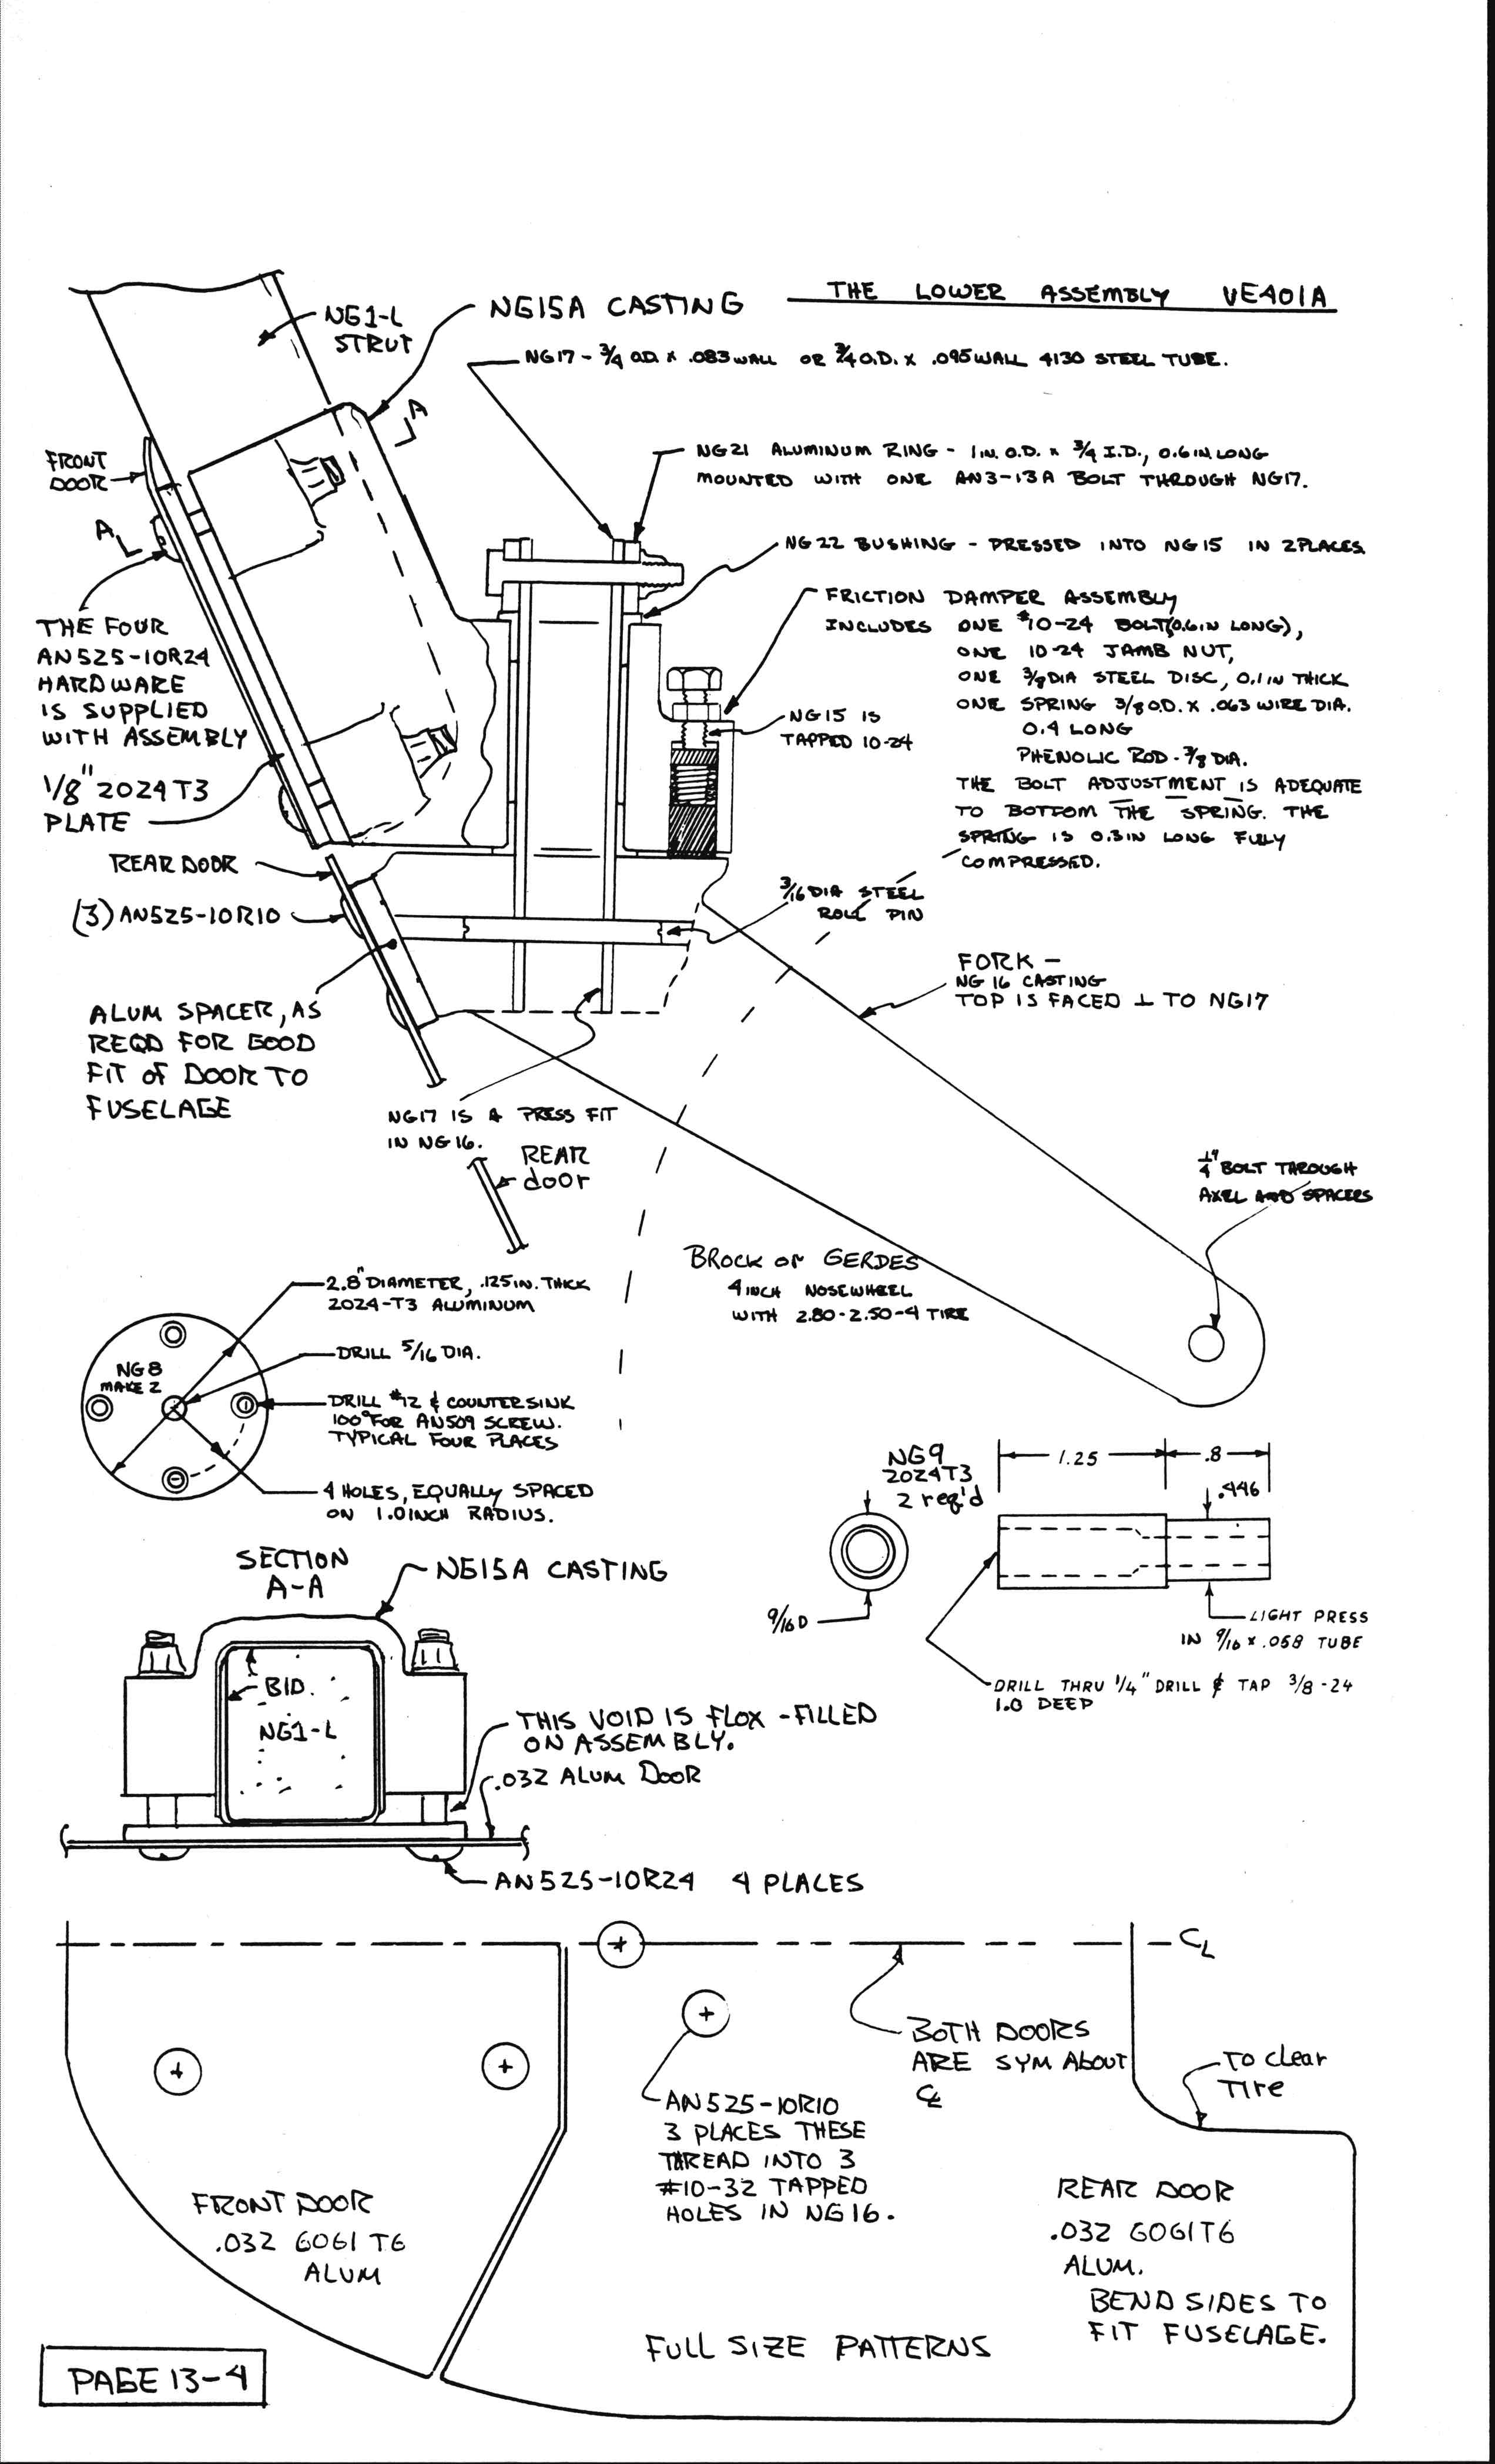 THE LOWER ASSEMBLY VE401A
NG1-L
STRUT
NG15A CASTING
NG17 - 3/4 O.D. x .083 WALL OR 3/4 O.D. x .095 WALL 4130 STEEL TUBE.
A
NG21 ALUMINUM RING - 1 IN. O.D. x 3/4 I.D., 0.6 IN. LONG
MOUNTED WITH ONE AN3-13A BOLT THROUGH NG17.
FRONT
DOOR
A
NG22 BUSHING - PRESSED INTO NG15 IN 2 PLACES
FRICTION DAMPER ASSEMBLY
INCLUDES ONE #10-24 BOLT (0.6 IN LONG),
ONE 10-24 JAMB NUT,
ONE 3/8 DIA STEEL DISC, 0.1 IN THICK
ONE SPRING 3/8 O.D. x .063 WIRE DIA.
0.4 LONG
PHENOLIC ROD - 3/8 DIA.
THE BOLT ADJUSTMENT IS ADEQUATE
TO BOTTOM THE SPRING. THE
SPRING IS 0.3 IN LONG FULLY
COMPRESSED.
THE FOUR
AN525-10R24
HARDWARE
IS SUPPLIED
WITH ASSEMBLY
NG15 IS
TAPPED 10-24
1/8" 2024T3
PLATE
REAR DOOR
(3) AN525-10R10
3/16 DIA STEEL
ROLL PIN
FORK -
NG 16 CASTING
TOP IS FACED ⊥ TO NG17
ALUM SPACER, AS
REQD FOR GOOD
FIT of DOOR TO
FUSELAGE
NG17 IS A PRESS FIT
IN NG16.
REAR
door
1/4" BOLT THROUGH
AXEL AND SPACERS
BROCK or GERDES
4 INCH NOSEWHEEL
WITH 2.80-2.50-4 TIRE
2.8" DIAMETER, .125 IN. THICK
2024-T3 ALUMINUM
NG8
MAKE 2
DRILL 5/16 DIA.
DRILL #12 & COUNTERSINK
100° FOR AN509 SCREW.
TYPICAL FOUR PLACES
4 HOLES, EQUALLY SPACED
ON 1.0 INCH RADIUS.
NG9
2024T3
2 req'd
1.25
.8
.446
9/16 D
LIGHT PRESS
IN 9/16 x .058 TUBE
DRILL THRU 1/4" DRILL & TAP 3/8-24
1.0 DEEP
SECTION
A-A
NG15A CASTING
BID.
NG1-L
THIS VOID IS FLOX-FILLED
ON ASSEMBLY.
.032 ALUM DOOR
AN525-10R24 4 PLACES
CL
BOTH DOORS
ARE SYM About
CL
TO clear
Tire
AN525-10R10
3 PLACES THESE
THREAD INTO 3
#10-32 TAPPED
HOLES IN NG16.
FRONT DOOR
.032 6061 T6
ALUM
REAR DOOR
.032 6061T6
ALUM.
BEND SIDES TO
FIT FUSELAGE.
FULL SIZE PATTERNS
PAGE 13-4